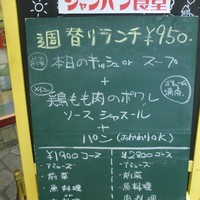 シャンパン食堂
週替りランチ ¥950.
前菜 本日のキッシュ or スープ
+
メイン 鶏もも肉のポワレ ボリューム満点
ソース シャスール
+
パン (おかわりOK)
¥1900 コース ¥2800 コース
アミューズ アミューズ
前菜 前菜
魚料理 魚料理
肉料理